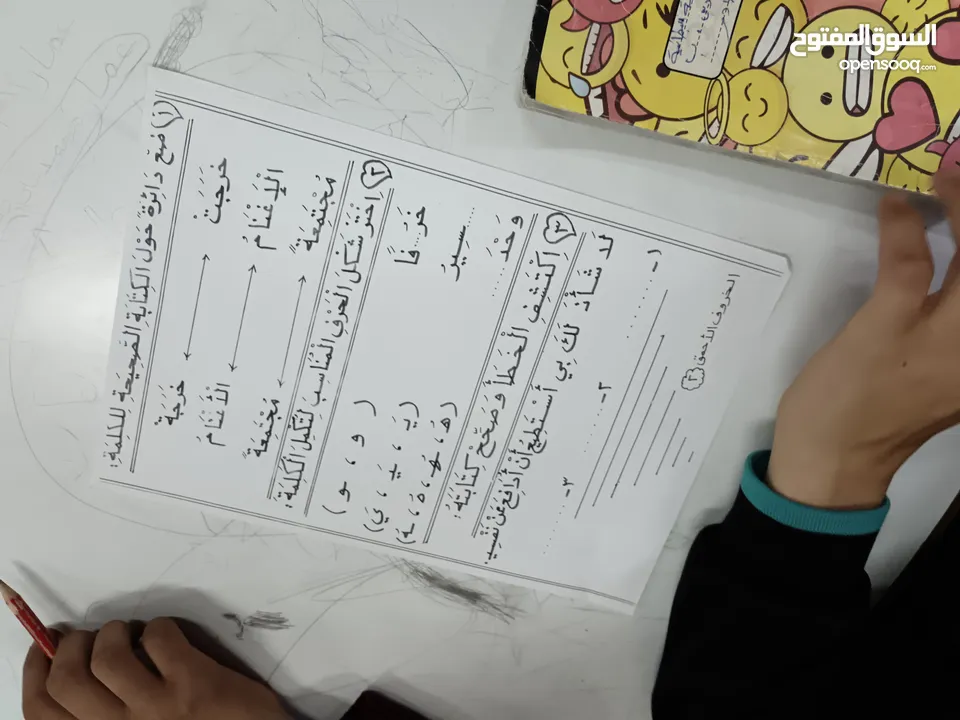 السوق المفتوح
opensooq.com
١) ضَع دَائِرَةً حَوْلَ الكِتَابَةِ الصَّحِيحَةِ لِلكَلِمَةِ:
خَرَجَتْ ⟷ خَرَجَة
الْإَغْنَامُ ⟷ الْأَغْنَامُ
مُجْتَمَعَةً ⟷ مُجْتَمِعَةً
٢ اِخْتَرْ شَكْلَ الْحَرْفِ الْمُنَاسِبَ لِتُكْمِلَ الْكَلِمَةَ:
خَرُ...فًا ( و ، ـو )
.......سِيرُ (يَـ ، ـيَـ ، ي)
وَحْدَ...... (هُ، ـهُـ ، ةَ ، ـهَ)
٣ اِكْتَشِفِ الْخَطَأَ وَصَحِّحْ كِتَابَتَهُ:
لَا شَأْنَ لَكَ بِي أَسْتَطِيعُ أَنْ أُدَافِعَ عَنْ نَفْسِي.
١-........ ٢-........ ٣-........
الخروف الأحمق (٣)